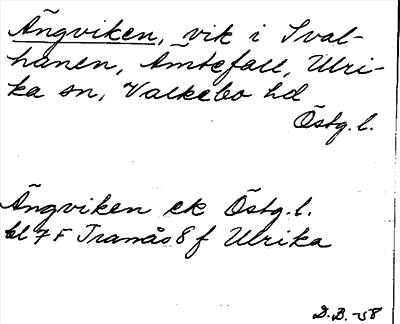 Ängviken, vik i Sval-
hanen, Åmtefall, Ulri-
ka sn, Valkebo hd
Östg. l.
Ängviken ek Östg. l.
bl 7 F Tranås 8 f Ulrika
D.B. -58